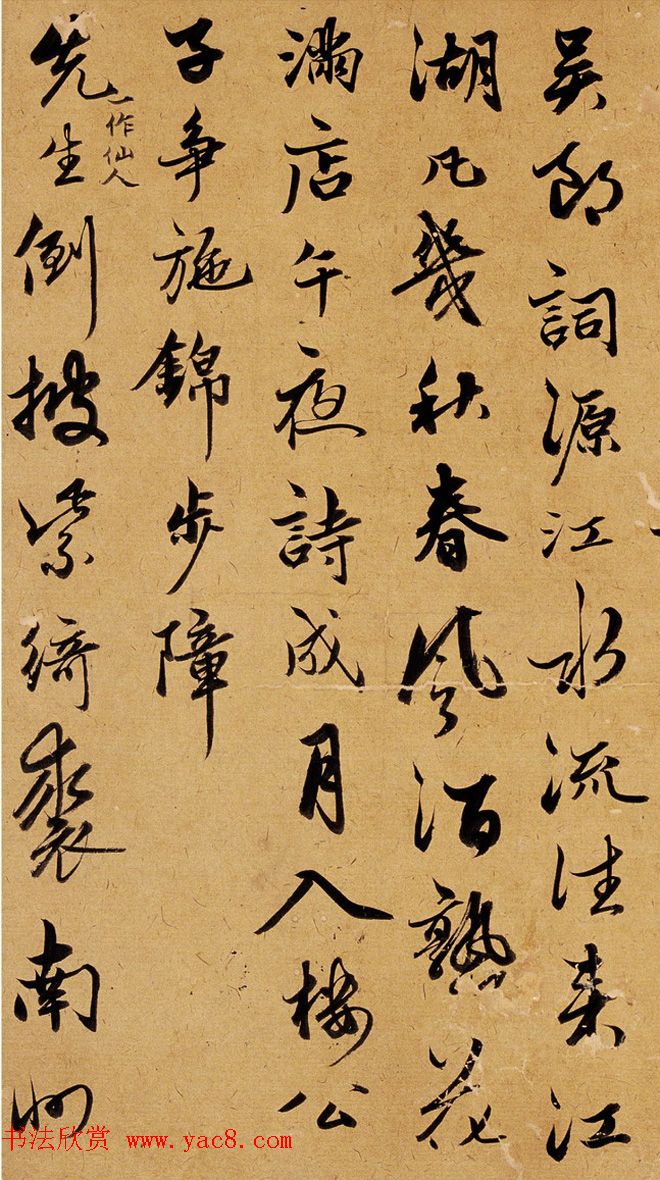 吴郎詞源江水流往来江
湖凡幾秋春風酒熟花
滿店午夜詩成月入樓公
子爭施錦步障
先生一作仙人倒披紫綺裘南州
书法欣赏 www.yac8.com